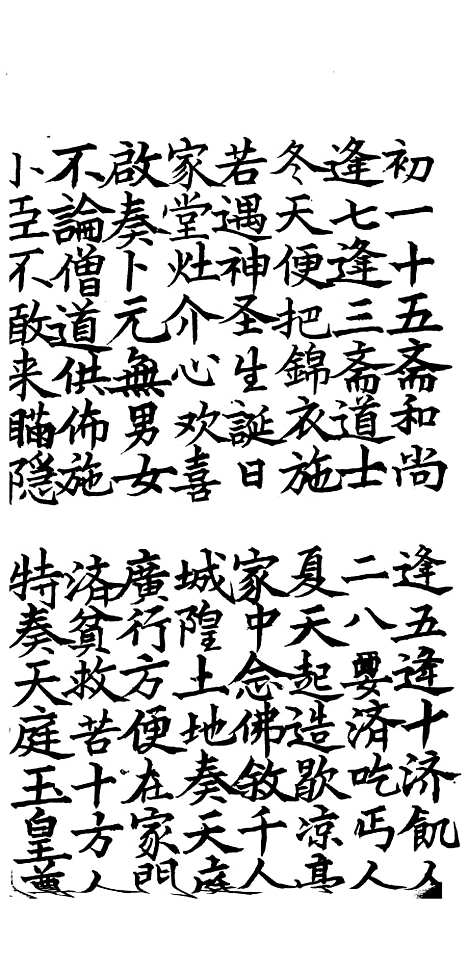 初一十五斋和尚
逢五逢十济飢人
逢七逢三斋道士
二八要済吃丐人
冬天便把錦衣施
夏天起造歇凉亭
若遇神圣生誕日
家中念佛千人
家堂灶介心欢喜
城隍土地奏天庭
啟奏卜元無男女
廣行方便在家門
不論僧道供佈施
済貧救苦十方人
小臣不敢来瞞隐
特奏天庭玉皇尊